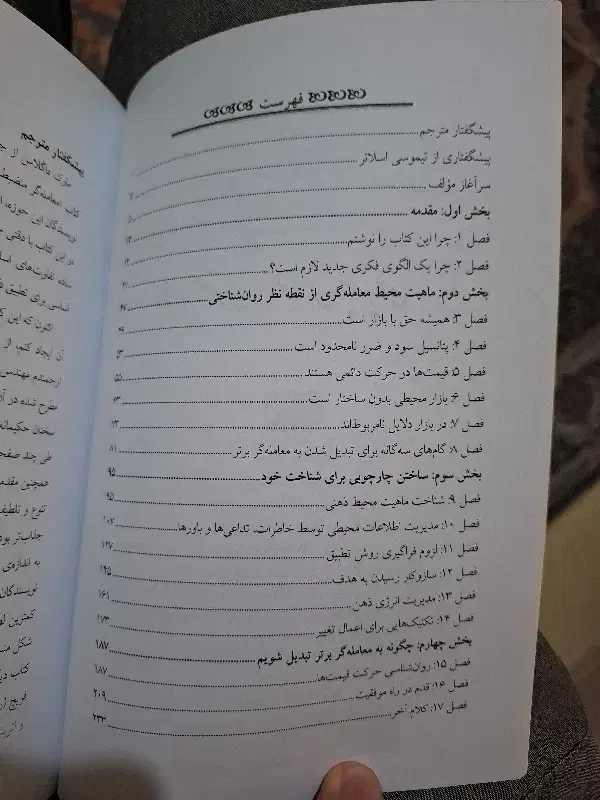 فهرست
پیشگفتار مترجم
پیشگفتاری از تیموسی اسلاتر
سرآغاز مؤلف ۵
بخش اول: مقدمه
فصل ۱: چرا این کتاب را نوشتم
فصل ۲: چرا یک الگوی فکری جدید لازم است؟
بخش دوم: ماهیت محیط معامله‌گری از نقطه نظر روان‌شناختی
فصل ۳: همیشه حق با بازار است
فصل ۴: پتانسیل سود و ضرر نامحدود است ۵۳
فصل ۵: قیمت‌ها در حرکت دائمی هستند ۵۵
فصل ۶: بازار محیطی بدون ساختار است ۶۳
فصل ۷: در بازار دلایل نامربوط‌اند
فصل ۸: گام‌های سه‌گانه برای تبدیل شدن به معامله‌گر برتر ۸۱
بخش سوم: ساختن چارچوبی برای شناخت خود ۹۵
فصل ۹: شناخت ماهیت محیط ذهنی ۹۵
فصل ۱۰: مدیریت اطلاعات محیطی توسط خاطرات، تداعی‌ها و باورها ۱۰۷
فصل ۱۱: لزوم فراگیری روش تطبیق ۱۲۷
فصل ۱۲: سازوکار رسیدن به هدف ۱۴۵
فصل ۱۳: مدیریت انرژی ذهن ۱۶۱
فصل ۱۴: تکنیک‌هایی برای اعمال تغییر ۱۷۳
بخش چهارم: چگونه به معامله‌گر برتر تبدیل شویم ۱۸۷
فصل ۱۵: روان‌شناسی حرکت قیمت‌ها ۱۸۷
فصل ۱۶: قدم در راه موفقیت ۲۰۹
فصل ۱۷: کلام آخر ۲۳۳
پیشگفتار مترجم
مارک داگلاس از
کتاب «معامله‌گر منضبط
نویسندگان این حوزه،
در این کتاب با دقتی
ساده تفاوت‌های
اساسی برای تطبیق
اکنون که این
آن ایجاد کنم، از
ارجمندم مهندس
مطرح شده در
سخنان حکیمانه
طی چند
همچنین مقدم
تنوع و
جذاب‌تر بود
به اندازه‌ی
نویسندگان
کمترین
شکل
کتاب